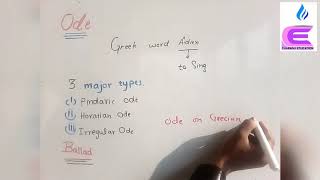 Ode
Greek word Aidan
to Sing
3 major types.
(i) Pindaric ode
(ii) Horatian Ode
(iii) Irregular Ode
Ode on Grecian
Ballad